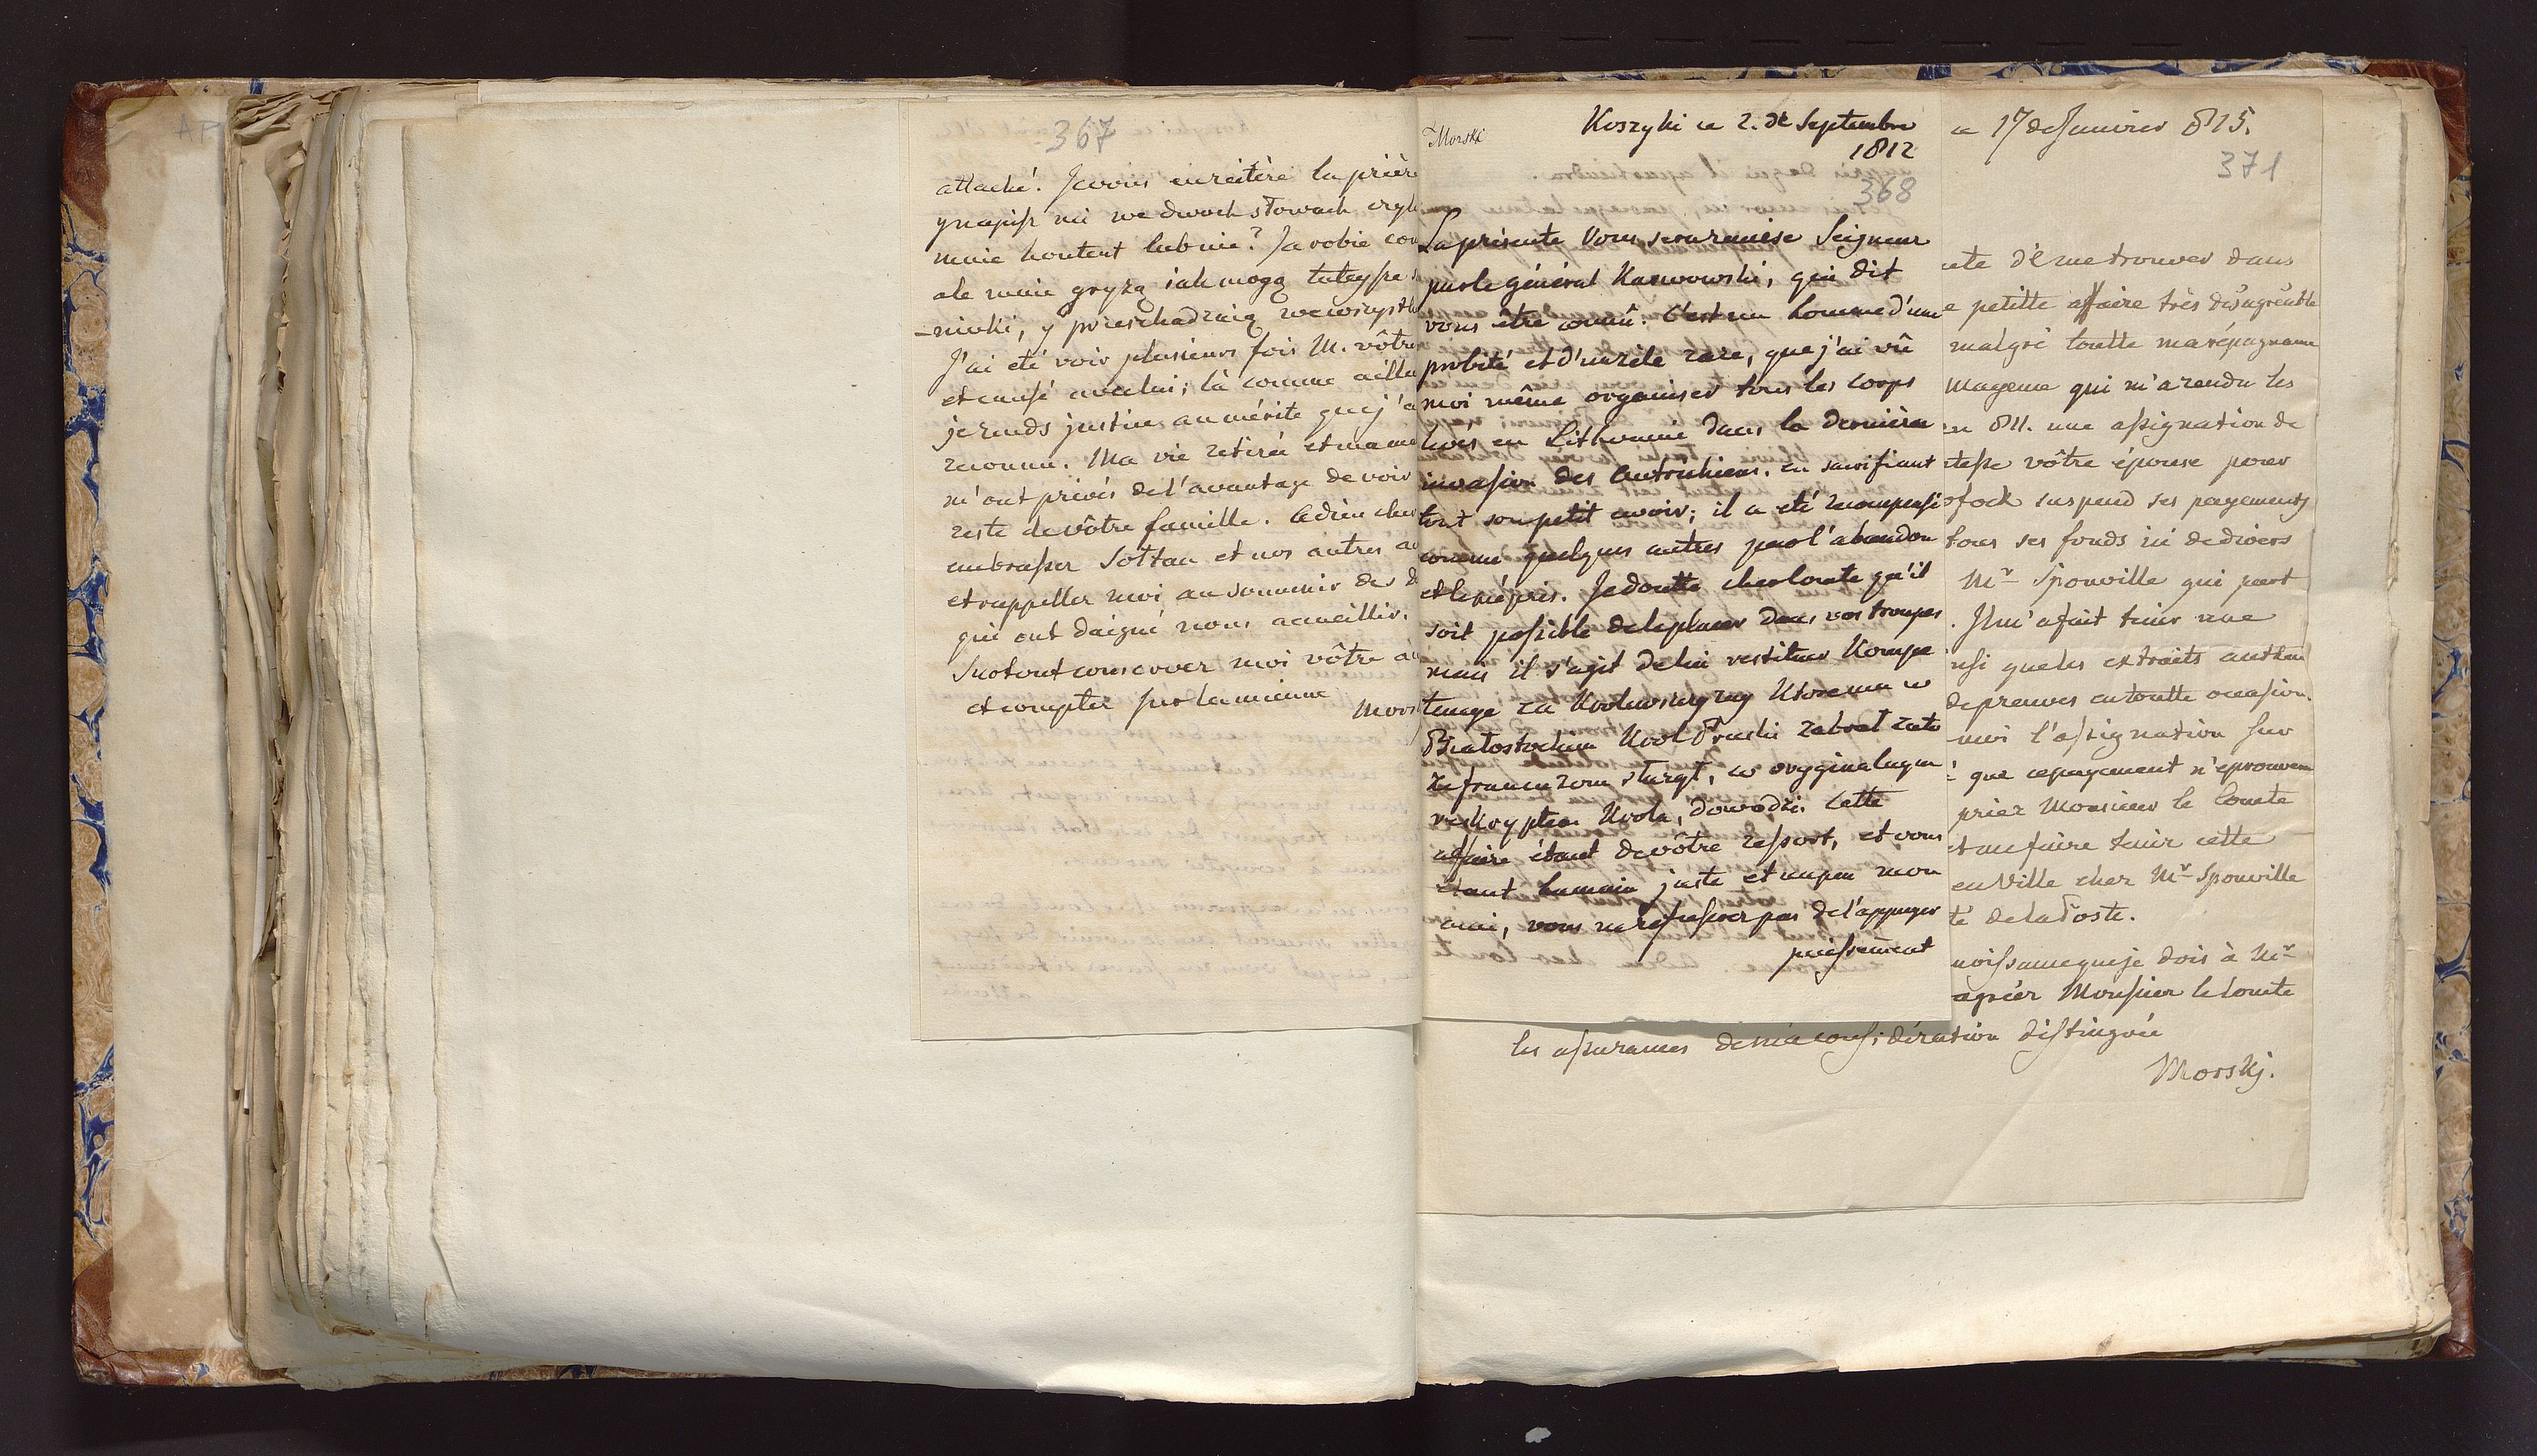 367
attaché. Je vous en reitère la prière
y napisz mi we dwoch słowach czyli
mnie kontent lub nie? Ja robie
ale mnie gryzą iak mogą tuteysze
-niuki, y przeschadzaią we wszystk
J'ai eté voir plusieurs fois M. vôtre
et causé avec lui; là comme aille
je rends justice au mérite que j'a
reconnu. Ma vie retirée et ma
m'ont privés de l'avantage de voir
reste de vôtre famille. Adieu cher
embrasser Sołtan et nos autres
et rappeller moi au souvenir des d
qui ont daigné nous acueillir.
Surtout conserver moi vôtre a
et compter sur la mienne
Mors
Morski
Koszyki ce 2. de Septembre
1812
368
La présente Vous sera remise Seigneur
par le général Karwowski, qui dit
vous être connû. C'est un homme d'une
probité et d'un zèle rare, que j'ai vû
moi même organiser tous les corps
levés en Lithuanie dans la dernière
invasion des Autrichiens, en sacrifiant
tout son petit avoir; il a eté recompensé
comme quelques autres par l'abandon
et le mépris. Je doutte cher Comte qu'il
soit possible de le placer dans vos troupes
mais il s'agit de lui restituer Kompe
tencye za Krolewszczyzny Ktore mu w
Białostockim Krol Pruski zabrał zato
ze francuzom sturzył, co oryginalnym
reskryptem Krola, dowodzi. Cette
affaire étant de vôtre ressort, et vous
étant humain juste et un peu mon
ami, vous ne refuserez pas de l'appuyer
puissement
ce 17 de Janvier 815.
371
de me trouver dans
e petitte affaire très desagréable
malgré toutte ma répugnance
Mayence qui m'a rendu les
en 811. une assignation de
tesse vôtre épouse pour
stock suspend ses payements
tous ses fonds ici de divers
Mr Sponville qui part
. Il m'a fait tenir une
nsi que les extraits authen
de preuves en toutte occasion.
moi l'assignation sur
é que ce payement n'eprouvera
prier Monsieur le Comte
et me faire tenir cette
en Ville chez Mr Sponville
té de la Poste.
noissance que je dois à Mr
agréer Monsieur le Comte
les assurances de ma considération distinguée
Morski.